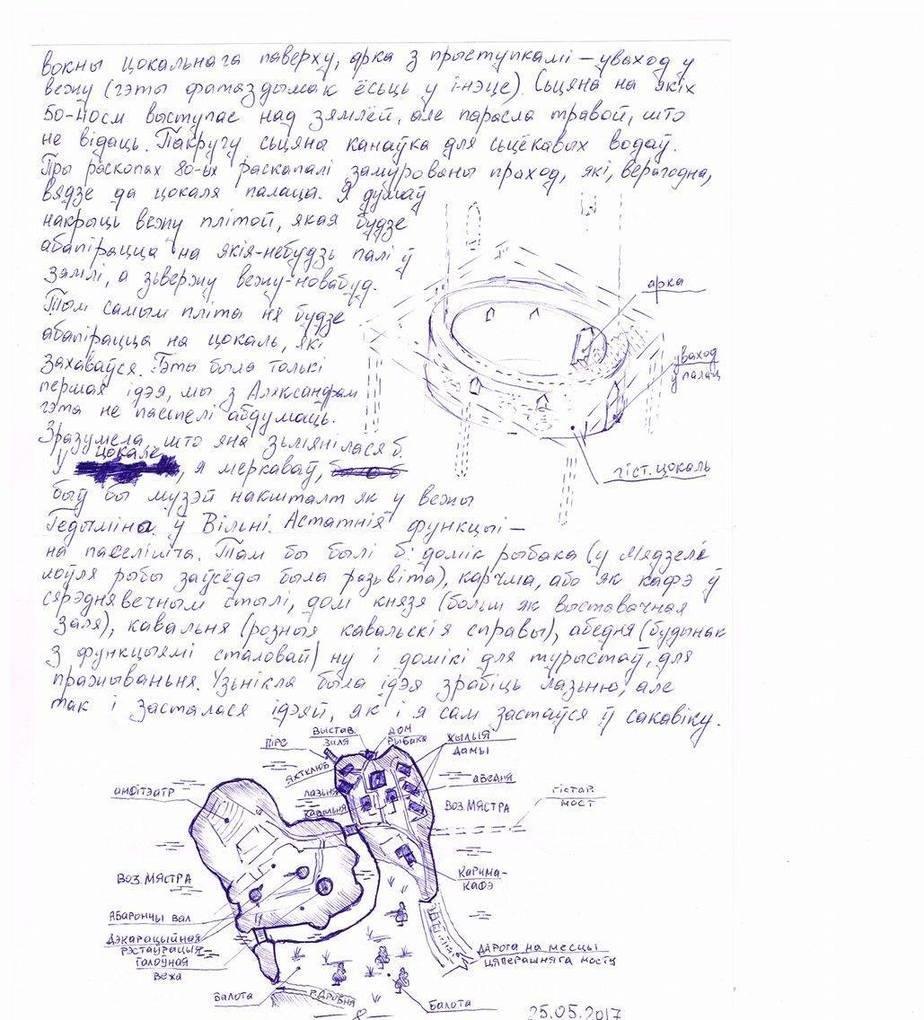 вокны цокальнага паверху, арка з прыступкамі – уваход у
вежу (гэты фотаздымак ёсьць у і-нэце). Сьцяна на якіх
50-40см выступае над зямлёй, але парасла травой, што
не відаць. Пакругу сьцяна канаўка для сьцёкавых водаў.
Пры раскопах 80-ых раскапалі замураваны праход, які, верагодна,
вядзе да цокаля палаца. Я думаў
накрыць вежу плітой, якая будзе
абапірацца на якія-небудзь палі ў
зямлі, а зьверху вежу-новабуд.
Тым самым пліта ня будзе
абапірацца на цокаль, які
захаваўся. Гэта была толькі
першая ідэя, мы з Аляксандрам
гэта не пасьпелі абдумаць.
Зразумела, што яна зьмянілася б.
У цокале, я меркаваў,
быў бы музэй накшталт як у вежы
Гедыміна ў Вільні. Астатнія функцыі –
на паселішча. Там бы былі б: домік рыбака (у Мядзеле
лоўля рыбы заўсёды была разьвіта), карчма, або як кафэ ў
сярэднявечным стылі, дом князя (больш як выставачная
заля), кавальня (розныя кавальскія справы), абедня (будынак
з функцыямі сталовай) ну і домікі для турыстаў, для
пражываньня. Узьнікла была ідэя зрабіць лазьню, але
так і засталася ідэяй, як і я сам застаўся ў сакавіку.
арка
уваход
у палац
гіст. цокаль
пірс
выстав.
заля
дом
рыбака
жылыя
дамы
яхтклуб
лазьня
кавальня
абедня
воз. Мястра
гістар.
мост
амфітэатр
карчма-
кафэ
воз. Мястра
абарончы вал
дэкарацыйная
рэстаўрацыя
галоўная
вежа
дарога на месцы
цяперашняга мосту
балота
р. Дробня
балота
25.05.2017